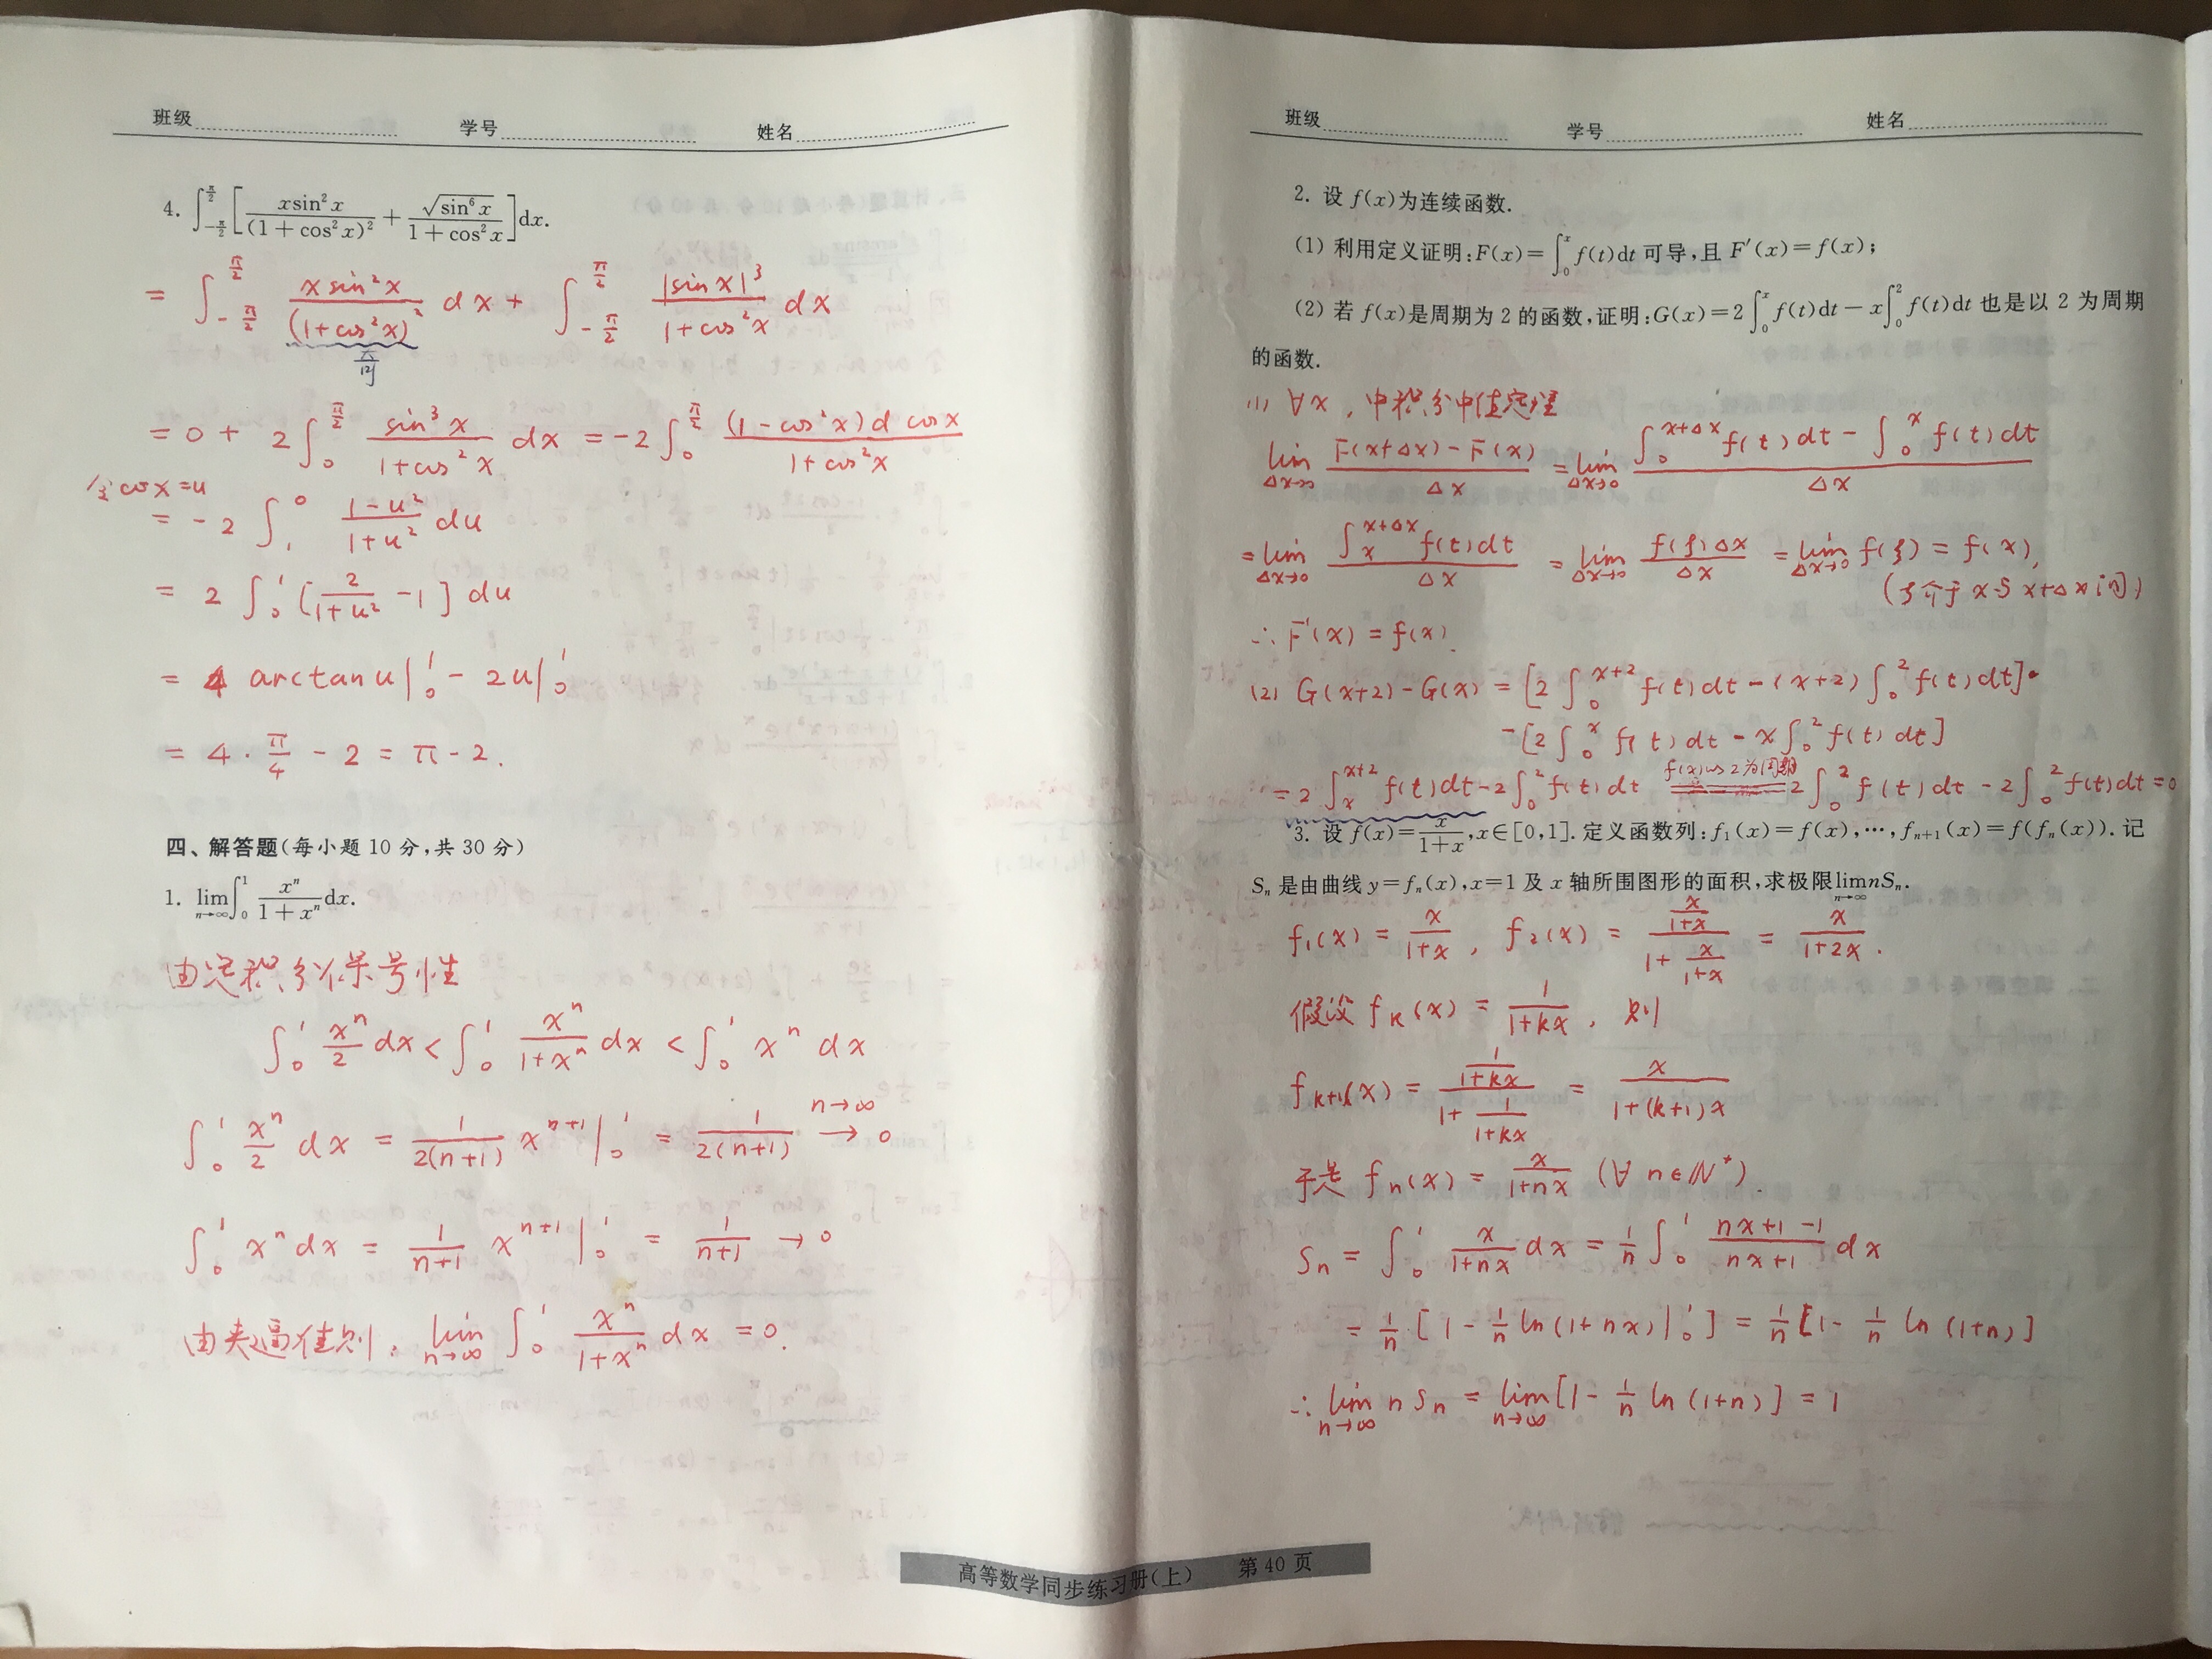 班级 学号 姓名
4. ∫_{-π/2}^{π/2} [ xsin²x/(1+cos²x)² + √(sin⁶x)/(1+cos²x) ]dx.
= ∫_{-π/2}^{π/2} xsin²x/(1+cos²x)² dx + ∫_{-π/2}^{π/2} |sin x|³/(1+cos²x) dx
= 0 + 2∫_0^{π/2} sin³x/(1+cos²x) dx = -2∫_0^{π/2} (1-cos²x)d cosx/(1+cos²x)
令cosx=u
= -2 ∫_1^0 (1-u²)/(1+u²) du
= 2 ∫_0^1 [2/(1+u²) -1] du
= 4 arctan u|_0^1 - 2u|_0^1
= 4·π/4 - 2 = π-2.
四、解答题(每小题 10 分,共 30 分)
1. lim_{n→∞}∫_0^1 xⁿ/(1+xⁿ)dx.
由定积分保号性
∫_0^1 xⁿ/2 dx < ∫_0^1 xⁿ/(1+xⁿ) dx < ∫_0^1 xⁿ dx
∫_0^1 xⁿ/2 dx = 1/(2(n+1)) x^{n+1}|_0^1 = 1/(2(n+1)) →^{n→∞} 0
∫_0^1 xⁿdx = 1/(n+1) x^{n+1}|_0^1 = 1/(n+1) → 0
由夹逼准则, lim_{n→∞} ∫_0^1 xⁿ/(1+xⁿ) dx = 0.
班级 学号 姓名
2. 设 f(x)为连续函数.
(1) 利用定义证明:F(x)=∫_0^x f(t)dt 可导,且 F′(x)=f(x);
(2) 若 f(x)是周期为 2 的函数,证明:G(x)=2∫_0^x f(t)dt-x∫_0^2 f(t)dt 也是以 2 为周期
的函数.
(1) ∀x, 由积分中值定理
lim_{Δx→0} (F(x+Δx)-F(x))/Δx = lim_{Δx→0} (∫_0^{x+Δx} f(t)dt - ∫_0^x f(t)dt)/Δx
= lim_{Δx→0} ∫_x^{x+Δx} f(t)dt/Δx = lim_{Δx→0} f(ξ)Δx/Δx = lim_{Δx→0} f(ξ) = f(x),
(ξ介于x与x+Δx间)
∴ F′(x) = f(x)
(2) G(x+2)-G(x) = [2∫_0^{x+2} f(t)dt-(x+2)∫_0^2 f(t)dt]
-[2∫_0^x f(t)dt - x∫_0^2 f(t)dt]
= 2∫_x^{x+2} f(t)dt-2∫_0^2 f(t)dt f(x)以2为周期 2∫_0^2 f(t)dt - 2∫_0^2 f(t)dt=0
3. 设 f(x)=x/(1+x),x∈[0,1]. 定义函数列:f₁(x)=f(x),…,f_{n+1}(x)=f(f_n(x)). 记
S_n 是由曲线 y=f_n(x),x=1 及 x 轴所围图形的面积,求极限lim_{n→∞} nS_n.
f₁(x) = x/(1+x), f₂(x) = (x/(1+x))/(1+x/(1+x)) = x/(1+2x).
假设 f_k(x) = 1/(1+kx), 则
f_{k+1}(x) = (1/(1+kx))/(1+1/(1+kx)) = x/(1+(k+1)x)
于是 f_n(x) = x/(1+nx) (∀ n∈N⁺).
S_n = ∫_0^1 x/(1+nx) dx = 1/n ∫_0^1 (nx+1-1)/(nx+1) dx
= 1/n [1-1/n ln(1+nx)|_0^1] = 1/n [1-1/n ln(1+n)]
∴ lim_{n→∞} n S_n = lim_{n→∞} [1-1/n ln(1+n)] = 1
高等数学同步练习册(上) 第 40 页